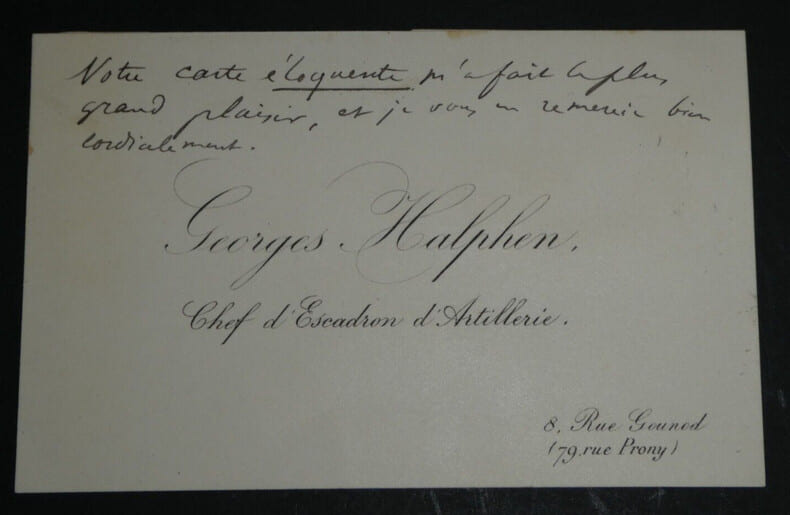 Votre carte éloquente m'a fait le plus
grand plaisir, et je vous en remercie bien
cordialement.
Georges Halphen,
Chef d'Escadron d'Artillerie.
8, Rue Gounod
(79, rue Prony)